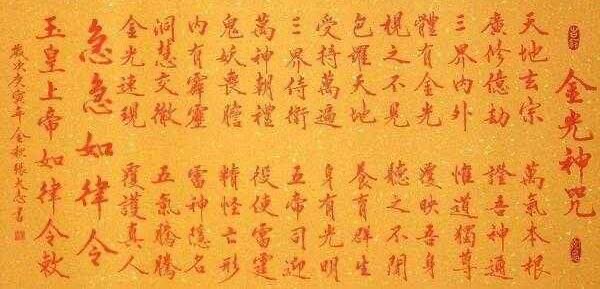 金光神咒
天地玄宗 萬氣本根
廣修億劫 證吾神通
三界內外 惟道獨尊
體有金光 覆映吾身
視之不見 聽之不聞
包羅天地 養育群生
受持萬遍 身有光明
三界侍衛 五帝司迎
萬神朝禮 役使雷霆
鬼妖喪膽 精怪亡形
內有霹靂 雷神隱名
洞慧交徹 五氣騰騰
金光速現 覆護真人
急急如律令
玉皇上帝如律令敕
歲次庚寅年金秋張大心書